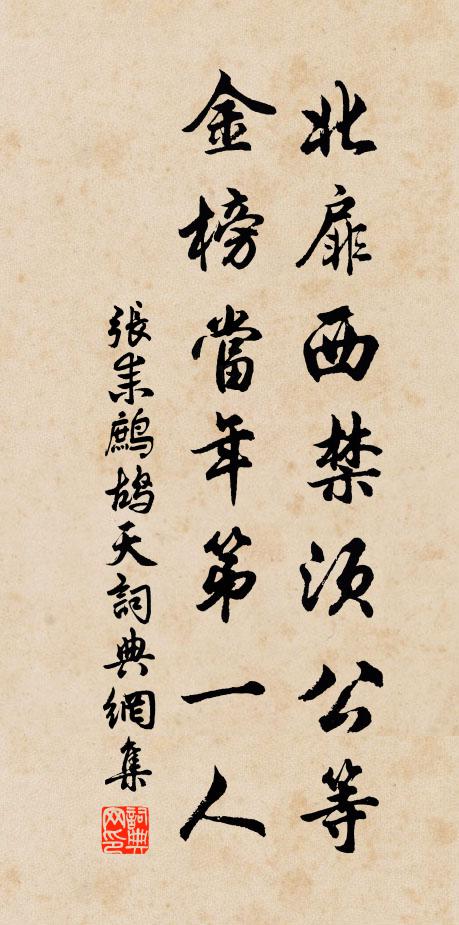 北扉西禁須公等
金榜當年第一人
張耒鷓鴣天詞典網集
詞典网印